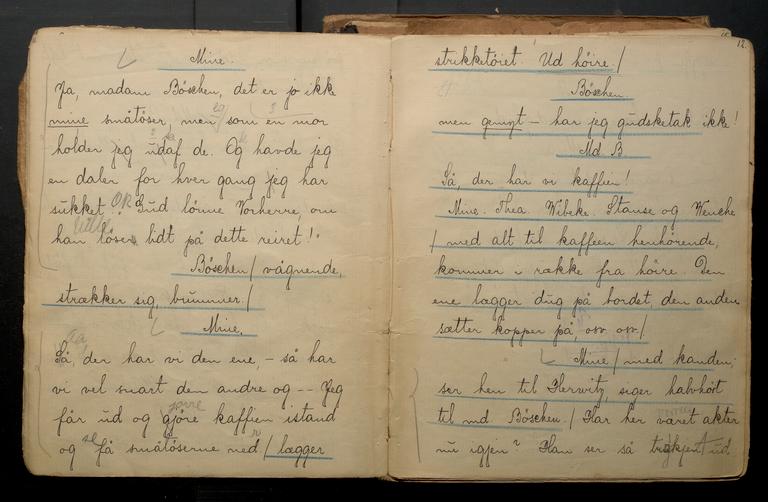 Mine.
Ja, madam Böschen, det er jo ikke
mine småtöser, men som en mor
holder jeg udaf de. Og havde jeg
en daler for hver gang jeg har
sukket: Gud lönne Vorherre, om
han löser lidt på dette reiret!
Böschen / vågnende,
strækker sig, brummer /
Mine.
Så, der har vi den ene, – så har
vi vel snart den andre og – – Jeg
får ud og gjöre kaffien istand
og få småtöserne ned / lægger
12.
strikketöiet. Ud höire. /
Böschen.
men gemyt – har jeg gudsketak ikke!
Md B
Så, der har vi kaffien!
Mine. Thea. Wibeke. Stanse og Wencke
/ med alt til kaffeen henhörende,
kommer i række fra höire. Den
ene lægger dug på bordet, den anden
sætter kopper på, osv. osv. /
Mine / med kanden,
ser hen til Herwitz, siger halvhöit
til md Böschen. / Har her været akter
nu igjen? Han ser så ud.